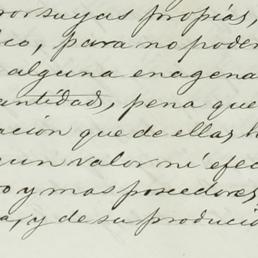 por suyas propias,
co, para no poder
alguna enagena
antidad, pena que
ación que de ellas h
gun valor ni efec
o y mas poseedores
a, y de su producio